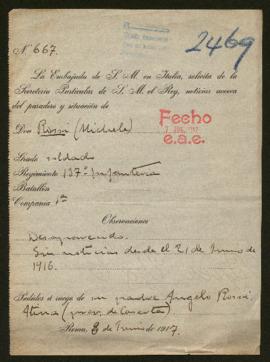 Nº 667.
2469
La Embajada de S. M. en Italia, solicita de la
Secretaría Particular de S. M. el Rey, noticias acerca
del paradero y situación de
Don Rossi (Michele)
Fecho
7 JUN. 1917
e.a.e.
Grado soldado
Regimiento 137º Infanteria
Batallón
Compañía 1ª
Observaciones
Desaparecido.
Sin noticias desde el 21 de Junio de
1916.
Pedidos á ruego de su padre Angelo Rossi
Atina (prov. de Caserta)
Roma, 3 de Junio de 1917.